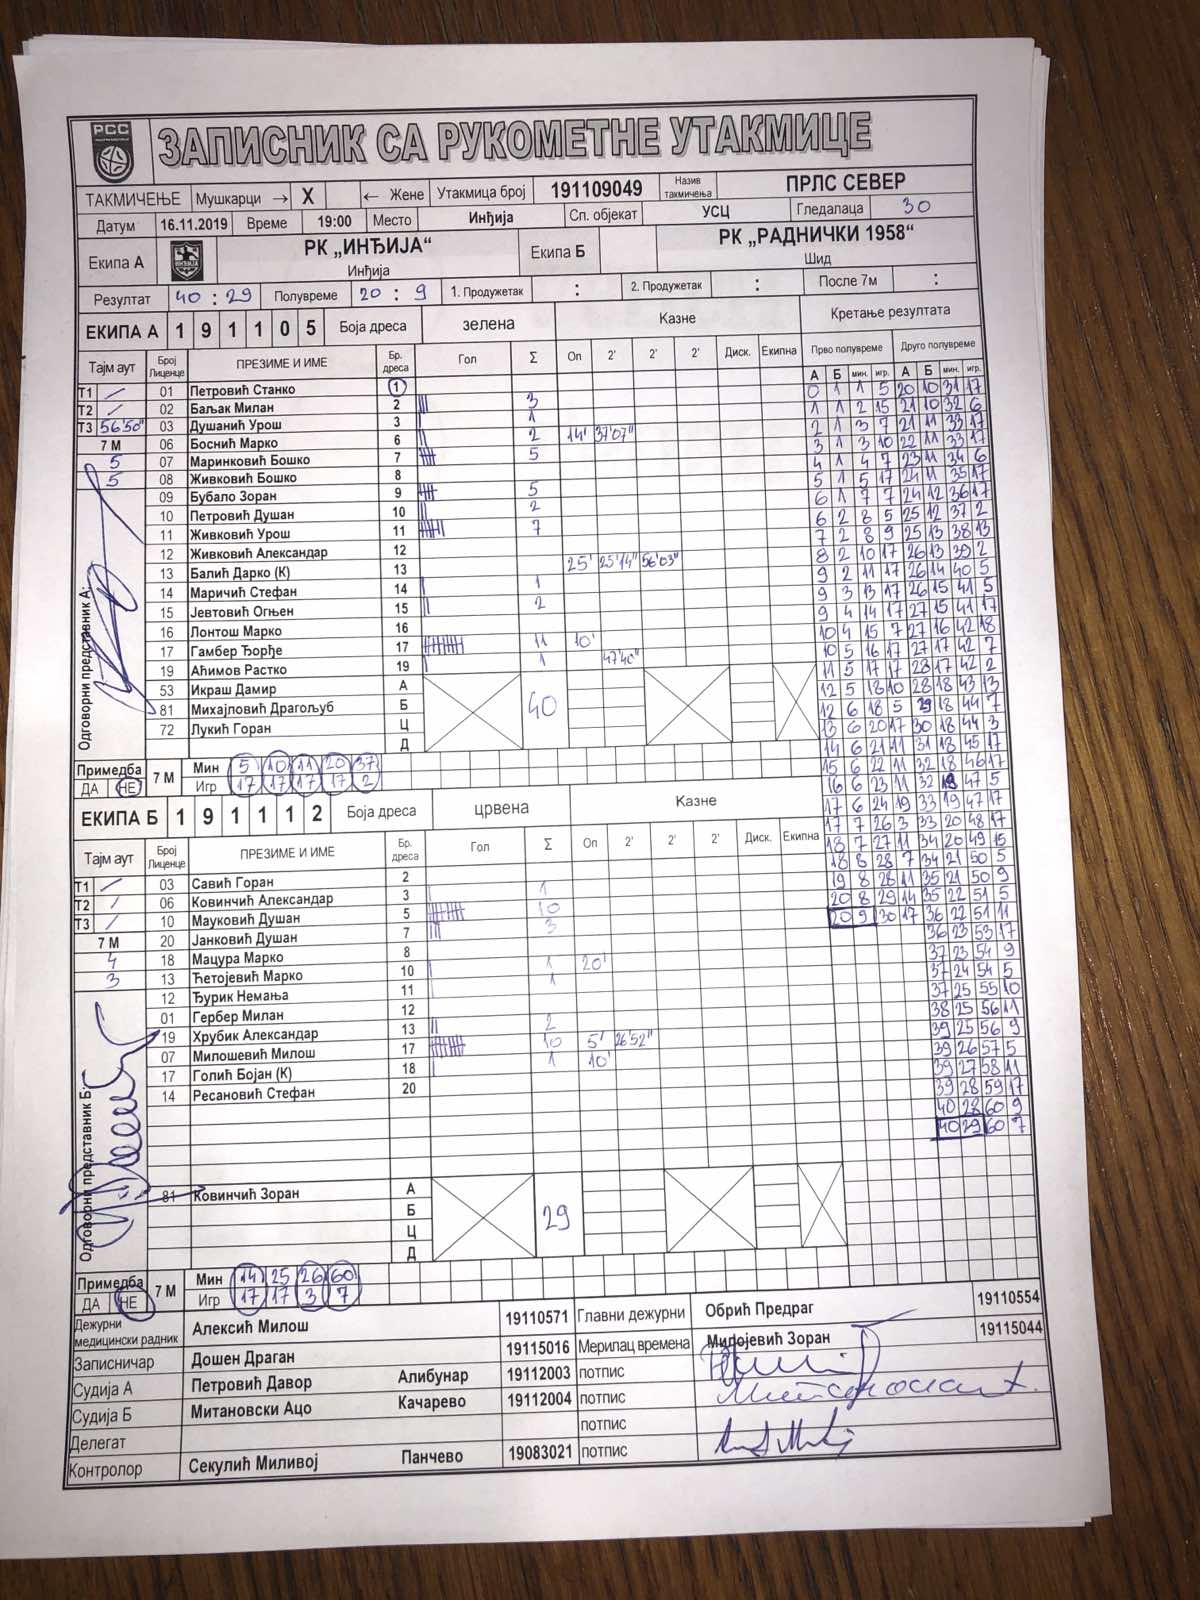 РСС
ЗАПИСНИК СА РУКОМЕТНЕ УТАКМИЦЕ
ТАКМИЧЕЊЕ Мушкарци → X ← Жене Утакмица број 191109049 Назив такмичења ПРЛС СЕВЕР
Датум 16.11.2019 Време 19:00 Место Инђија Сп. објекат УСЦ Гледалаца 30
Екипа А РК „ИНЂИЈА“ Инђија Екипа Б РК „РАДНИЧКИ 1958“ Шид
Резултат 40 : 29 Полувреме 20 : 9 1. Продужетак : 2. Продужетак : После 7м :
ЕКИПА А 1 9 1 1 0 5 Боја дреса зелена Казне Кретање резултата
Тајм аут Број Лиценце ПРЕЗИМЕ И ИМЕ Бр. дреса Гол Σ Оп 2' 2' 2' Диск. Екипна Прво полувреме Друго полувреме
А Б мин. игр. А Б мин. игр.
Т1 / 01 Петровић Станко 1
Т2 / 02 Баљак Милан 2 3
Т3 56'50" 03 Душанић Урош 3 1
7 М 06 Боснић Марко 6 2 14' 37'07"
5 07 Маринковић Бошко 7 5
5 08 Живковић Бошко 8
09 Бубало Зоран 9 5
10 Петровић Душан 10 2
11 Живковић Урош 11 7
12 Живковић Александар 12
13 Балић Дарко (К) 13 25' 25'14" 56'03"
14 Маричић Стефан 14 1
15 Јевтовић Огњен 15 2
16 Лонтош Марко 16
17 Гамбер Ђорђе 17 11 10'
19 Аћимов Растко 19 1 47'40"
53 Икраш Дамир А
81 Михајловић Драгољуб Б 40
72 Лукић Горан Ц
Д
Одговорни представник А:
Примедба ДА НЕ 7 М Мин 5 10 11 20 37
Игр 17 17 17 17 2
0 1 1 5 20 10 31 17
1 1 2 15 21 10 32 6
2 1 3 7 21 11 33 17
3 1 3 10 22 11 33 17
4 1 4 7 23 11 34 6
5 1 5 17 24 11 35 17
6 1 7 7 24 12 36 17
6 2 8 5 25 12 37 2
7 2 8 9 25 13 38 13
8 2 10 17 26 13 39 2
9 2 11 17 26 14 40 5
9 3 13 17 26 15 41 5
9 4 14 17 27 15 41 17
10 4 15 7 27 16 42 18
10 5 16 17 27 17 42 7
11 5 17 17 28 17 42 2
12 5 18 10 28 18 43 13
12 6 18 5 29 18 44 7
13 6 20 17 30 18 44 3
14 6 21 11 31 18 45 17
15 6 22 11 32 18 46 17
16 6 23 11 32 19 47 5
17 6 24 19 33 19 47 17
17 7 26 3 33 20 48 17
18 7 27 11 34 20 49 15
18 8 28 7 34 21 50 5
19 8 28 11 35 21 50 9
20 8 29 14 35 22 51 5
20 9 30 17 36 22 51 11
36 23 53 17
37 23 54 9
37 24 54 5
37 25 55 10
38 25 56 11
39 25 56 9
39 26 57 5
39 27 58 11
39 28 59 17
40 28 60 9
40 29 60 7
ЕКИПА Б 1 9 1 1 1 2 Боја дреса црвена Казне
Тајм аут Број Лиценце ПРЕЗИМЕ И ИМЕ Бр. дреса Гол Σ Оп 2' 2' 2' Диск. Екипна
Т1 / 03 Савић Горан 2
Т2 / 06 Ковинчић Александар 3 1
Т3 / 10 Мауковић Душан 5 10
7 М 20 Јанковић Душан 7 3
4 18 Мацура Марко 8
3 13 Ћетојевић Марко 10 1 20'
12 Ђурик Немања 11 1
01 Гербер Милан 12
19 Хрубик Александар 13 2
07 Милошевић Милош 17 10 5' 26'52"
17 Голић Бојан (К) 18 1 10'
14 Ресановић Стефан 20
Одговорни представник Б:
81 Ковинчић Зоран А
Б 29
Ц
Д
Примедба ДА НЕ 7 М Мин 14 25 26 60
Игр 17 17 3 7
Дежурни медицински радник Алексић Милош 19110571 Главни дежурни Обрић Предраг 19110554
Записничар Дошен Драган 19115016 Мерилац времена Милојевић Зоран 19115044
Судија А Петровић Давор Алибунар 19112003 потпис
Судија Б Митановски Ацо Качарево 19112004 потпис
Делегат потпис
Контролор Секулић Миливој Панчево 19083021 потпис